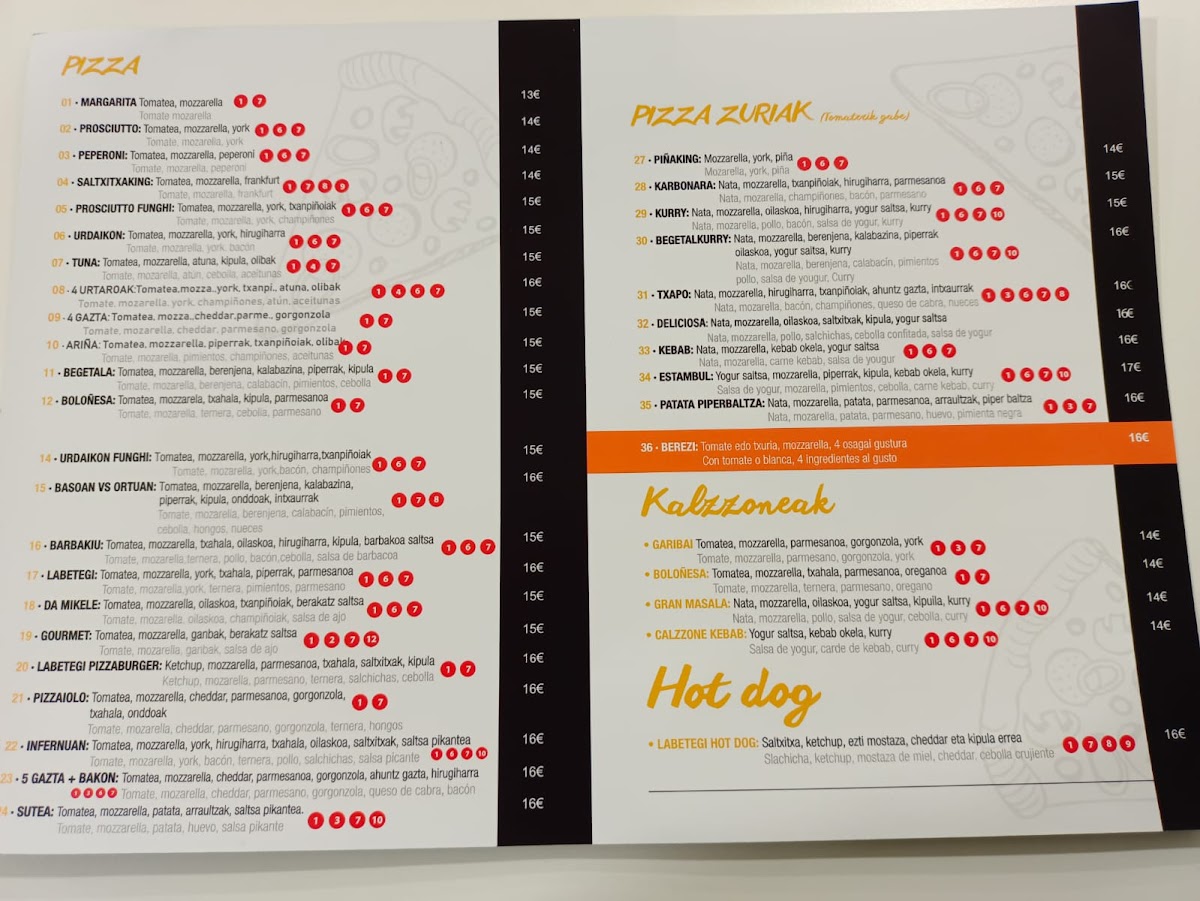 PIZZA
01 • MARGARITA Tomatea, mozzarella 1 7 13€
Tomate mozarella
02 • PROSCIUTTO: Tomatea, mozzarella, york 1 6 7 14€
Tomate, mozarella, york
03 • PEPERONI: Tomatea, mozzarella, peperoni 1 6 7 14€
Tomate, mozarella, peperoni
04 • SALTXITXAKING: Tomatea, mozzarella, frankfurt 1 7 8 9 14€
Tomate, mozarella, frankfurt
05 • PROSCIUTTO FUNGHI: Tomatea, mozzarella, york, txanpiñoiak 1 6 7 15€
Tomate, mozarella, york, champiñones
06 • URDAIKON: Tomatea, mozzarella, york, hirugiharra 1 6 7 15€
Tomate, mozarella, york, bacón
07 • TUNA: Tomatea, mozzarella, atuna, kipula, olibak 1 4 7 15€
Tomate, mozarella, atún, cebolla, aceitunas
08 • 4 URTAROAK:Tomatea,mozza..york, txanpi.. atuna, olibak 1 4 6 7 16€
Tomate, mozarella, york, champiñones, atún, aceitunas
09 • 4 GAZTA: Tomatea, mozza..,cheddar,parme.. gorgonzola 1 7 15€
Tomate, mozarella, cheddar, parmesano, gorgonzola
10 • ARIÑA: Tomatea, mozzarella, piperrak, txanpiñoiak, olibak 1 7 15€
Tomate, mozarella, pimientos, champiñones, aceitunas
11 • BEGETALA: Tomatea, mozzarella, berenjena, kalabazina, piperrak, kipula 1 7 15€
Tomate, mozarella, berenjena, calabacín, pimientos, cebolla
12 • BOLOÑESA: Tomatea, mozzarela, txahala, kipula, parmesanoa 1 7 15€
Tomate, mozarella, ternera, cebolla, parmesano
14 • URDAIKON FUNGHI: Tomatea, mozzarella, york,hirugiharra,txanpiñoiak 1 6 7 15€
Tomate, mozarella, york,bacón, champiñones
15 • BASOAN VS ORTUAN: Tomatea, mozzarella, berenjena, kalabazina, 16€
piperrak, kipula, onddoak, intxaurrak 1 7 8
Tomate, mozarella, berenjena, calabacín, pimientos,
cebolla, hongos, nueces
16 • BARBAKIU: Tomatea, mozzarella, txahala, oilaskoa, hirugiharra, kipula, barbakoa saltsa 1 6 7 15€
Tomate, mozzarella,ternera, pollo, bacón,cebolla, salsa de barbacoa
17 • LABETEGI: Tomatea, mozzarella, york, txahala, piperrak, parmesanoa 1 6 7 16€
Tomate, mozzarella,york, ternera, pimientos, parmesano
18 • DA MIKELE: Tomatea, mozzarella, oilaskoa, txanpiñoiak, berakatz saltsa 1 6 7 15€
Tomate, mozarella, oilaskoa, champiñoiak, salsa de ajo
19 • GOURMET: Tomatea, mozzarella, ganbak, berakatz saltsa 1 2 7 12 15€
Tomate, mozarella, ganbak, salsa de ajo
20 • LABETEGI PIZZABURGER: Ketchup, mozzarella, parmesanoa, txahala, saltxitxak, kipula 1 7 16€
Ketchup, mozarella, parmesano, ternera, salchichas, cebolla
21 • PIZZAIOLO: Tomatea, mozzarella, cheddar, parmesanoa, gorgonzola, 16€
txahala, onddoak 1 7
Tomate, mozarella, cheddar, parmesano, gorgonzola, ternera, hongos
22 • INFERNUAN: Tomatea, mozzarella, york, hirugiharra, txahala, oilaskoa, saltxitxak, saltsa pikantea 16€
Tomate, mozarella, york, bacón, ternera, pollo, salchichas, salsa picante 1 6 7 10
23 • 5 GAZTA + BAKON: Tomatea, mozzarella, cheddar, parmesanoa, gorgonzola, ahuntz gazta, hirugiharra 16€
1 3 6 7 Tomate, mozzarella, cheddar, parmesano, gorgonzola, queso de cabra, bacón
4 • SUTEA: Tomatea, mozzarella, patata, arraultzak, saltsa pikantea. 1 3 7 10 16€
Tomate, mozzarella, patata, huevo, salsa pikante
PIZZA ZURIAK (Tomaterik gabe)
27 • PIÑAKING: Mozzarella, york, piña 1 6 7 14€
Mozarella, york, piña
28 • KARBONARA: Nata, mozzarella, txanpiñoiak, hirugiharra, parmesanoa 1 6 7 15€
Nata, mozarella, champiñones, bacón, parmesano
29 • KURRY: Nata, mozzarella, oilaskoa, hirugiharra, yogur saltsa, kurry 1 6 7 10 15€
Nata, mozarella, pollo, bacón, salsa de yogur, kurry
30 • BEGETALKURRY: Nata, mozzarella, berenjena, kalabazina, piperrak 16€
oilaskoa, yogur saltsa, kurry 1 6 7 10
Nata, mozarella, berenjena, calabacín, pimientos
pollo, salsa de yougur, Curry
31 • TXAPO: Nata, mozzarella, hirugiharra, txanpiñoiak, ahuntz gazta, intxaurrak 1 3 6 7 8 16€
Nata, mozarella, bacón, champiñones, queso de cabra, nueces
32 • DELICIOSA: Nata, mozzarella, oilaskoa, saltxitxak, kipula, yogur saltsa 16€
Nata, mozzarella, pollo, salchichas, cebolla confitada, salsa de yogur
33 • KEBAB: Nata, mozzarella, kebab okela, yogur saltsa 1 6 7 16€
Nata, mozarella, carne kebab, salsa de yougur
34 • ESTAMBUL: Yogur saltsa, mozzarella, piperrak, kipula, kebab okela, kurry 1 6 7 10 17€
Salsa de yogur, mozarella, pimientos, cebolla, carne kebab, curry
35 • PATATA PIPERBALTZA: Nata, mozzarella, patata, parmesanoa, arraultzak, piper baltza 1 3 7 16€
Nata, mozarella, patata, parmesano, huevo, pimienta negra
36 • BEREZI: Tomate edo txuria, mozzarella, 4 osagai gustura 16€
Con tomate o blanca, 4 ingredientes al gusto
Kalzzoneak
• GARIBAI Tomatea, mozzarella, parmesanoa, gorgonzola, york 1 3 7 14€
Tomate, mozarella, parmesano, gorgonzola, york
• BOLOÑESA: Tomatea, mozzarella, txahala, parmesanoa, oreganoa 1 7 14€
Tomate, mozarella, ternera, parmesano, oregano
• GRAN MASALA: Nata, mozzarella, oilaskoa, yogur saltsa, kipuila, kurry 1 6 7 10 14€
Nata, mozarella, pollo, salsa de yogur, cebolla, curry
• CALZZONE KEBAB: Yogur saltsa, kebab okela, kurry 1 6 7 10 14€
Salsa de yogur, carde de kebab, curry
Hot dog
• LABETEGI HOT DOG: Saltxitxa, ketchup, ezti mostaza, cheddar eta kipula errea 1 7 8 9 16€
Slachicha, ketchup, mostaza de miel, cheddar, cebolla crujiente